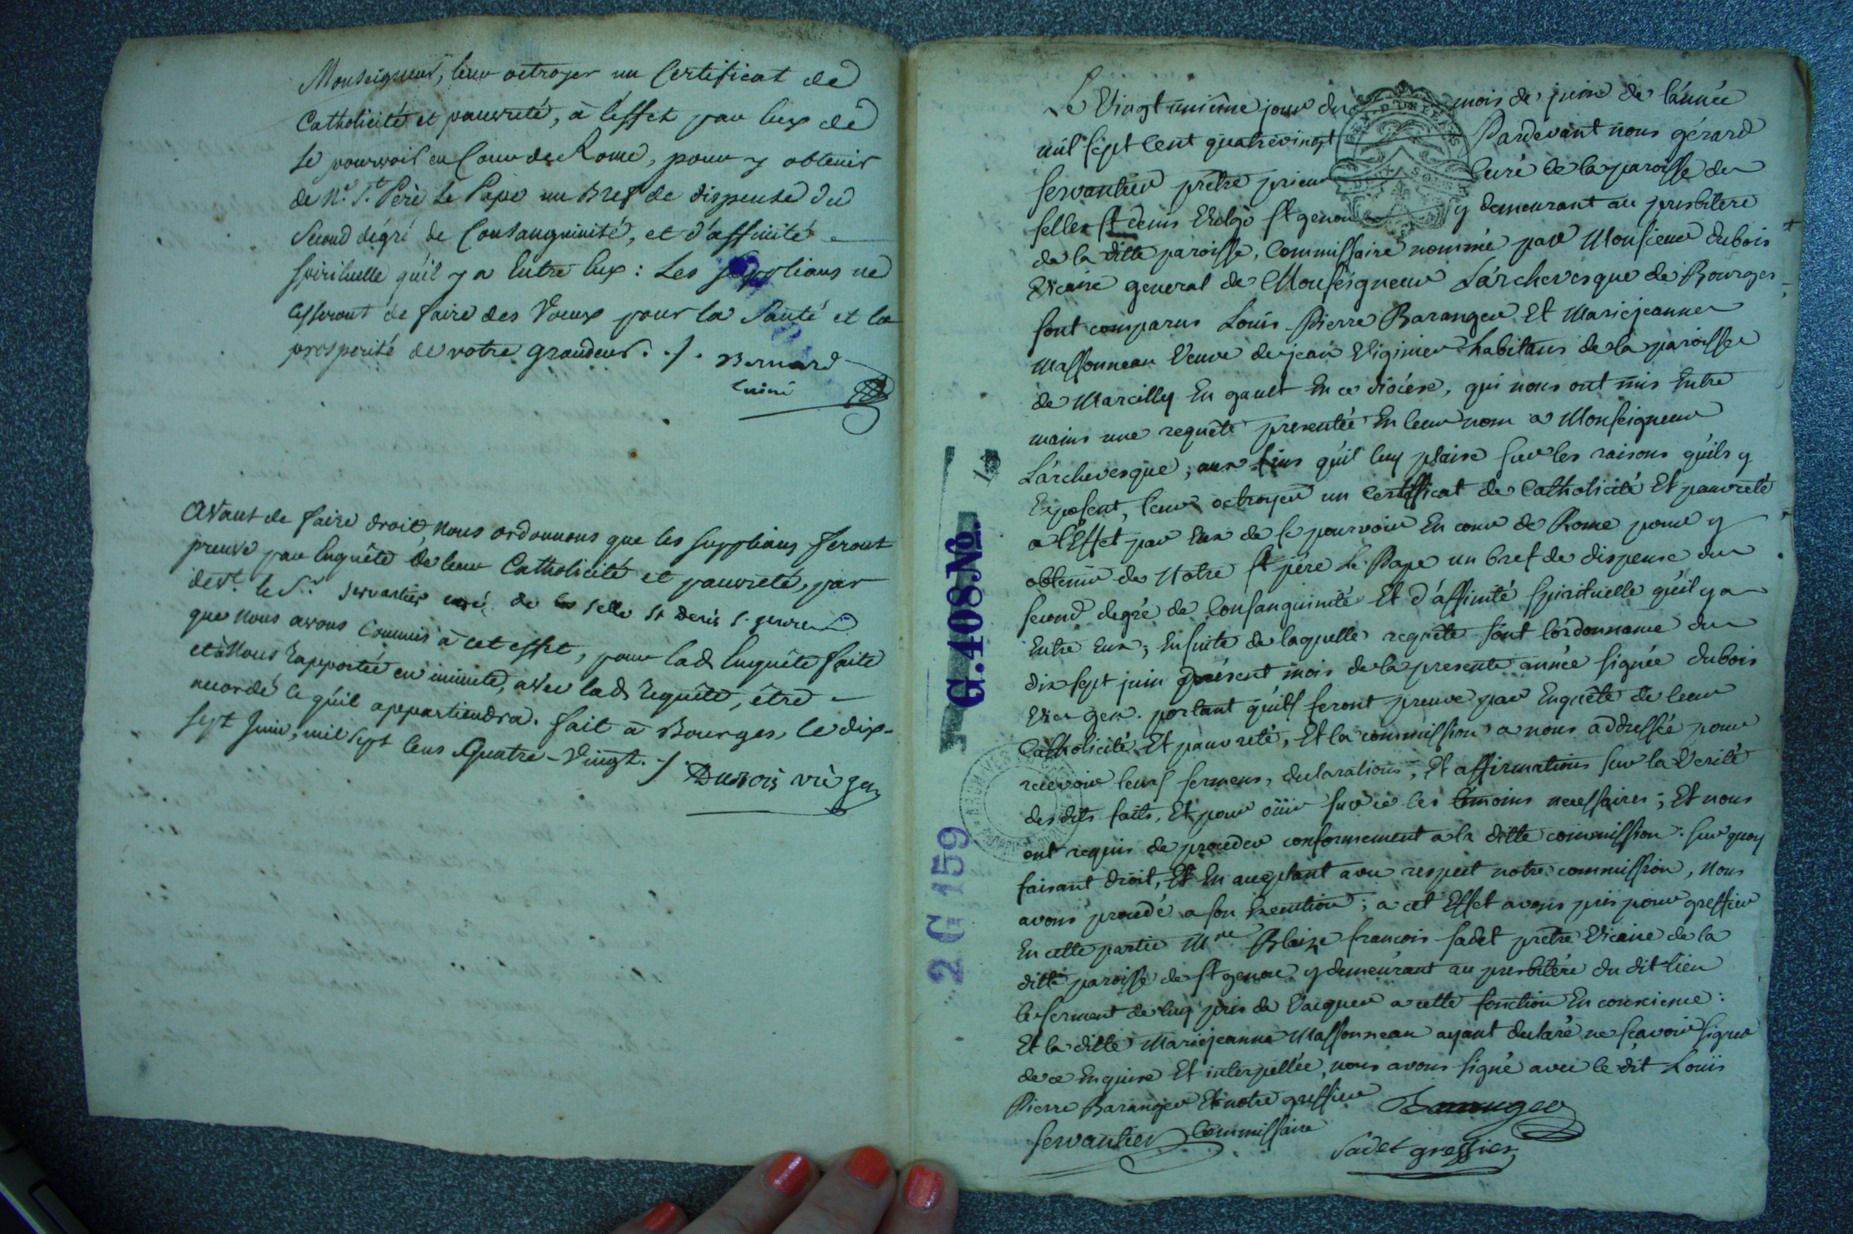 Monseigneur, leur octroyer un Certificat de
Catholicité et pauvreté, à l'effet par eux de
se pourvoir en Cour de Rome, pour y obtenir
de N.e S.t Père le Pape un Bref de dispense du
Second dégré de Consanguinité, et d'affinité
spirituelle qu'il y a Entre Eux : Les supplians ne
cesseront de faire des Vœux pour la Santé et la
prosperité de votre grandeur. ./. Bernard
Avant de faire droit, nous ordonnons que les supplians feront
preuve par Enquête de leur Catholicité et pauvreté, par
dev.t le S.r Servantier curé de la selle St Denis S.t genou
que nous avons Commis à cet effet, pour lad. Enquête faite
et à Nous rapportée en minute, avec lad. requête, être
accordé ce qu'il appartiendra. fait à Bourges, le dix-
sept Juin, mil sept cens Quatre-Vingt. ./. Dubois vic gen
Le Vingt unième jour du mois de juin de l'année
mil sept cent quatrevingt Pardevant nous gérard
servantier prêtre prieur Curé de la paroisse de
selles st denis Vulgo st genou y demeurant au presbitere
de la ditte paroisse, Commissaire nommé par Monsieur dubois
Vicaire general de Monseigneur L'archevesque de Bourges
sont comparus Louis Pierre Baranger Et Mariejeanne
Massonneau Veuve de jean Viginier habitans de la paroisse
de Marcilly En gault En ce diocèse, qui nous ont mis Entre
mains une requête presentée En leur nom a Monseigneur
L'archevesque, aux fins qu'il luy plaise sur les raisons qu'ils y
Exposent, leur octroyer un Certificat de Catholicité Et pauvreté
a l'Effet par Eux de se pourvoir En cour de Rome pour y
obtenir de Notre st père Le Pape un bref de dispense du
second degré de Consanguinité Et d'affinité spirituelle qu'il y a
Entre Eux ; Ensuite de laquelle requête sont l'ordonnance du
dix sept juin présent mois de la presente année signée dubois
Vic. gen. portant qu'ils feront preuve par Enquête de leur
Catholicité Et pauvreté, Et la commission a nous addressée pour
recevoir leurs sermens, declarations, Et affirmations sur la Verité
des dits faits, Et pour oüir sur ce les témoins necessaires ; Et nous
ont requis de proceder conformement a la ditte commission. sur quoy
faisant droit, Et En acceptant avec respect notre commission, Nous
avons procedé a son Execution ; a cet Effet avons pris pour greffier
En cette partie M.re Blaize francois sadet prêtre Vicaire de la
ditte paroisse de st genou y demeurant au presbitère du dit lieu
le serment de luy pris de Vacquer a cette fonction En conscience :
Et la ditte Mariejeanne Massonneau ayant declaré ne scavoir signer
de ce Enquise Et interpellée, nous avons signé avec le dit Louis
Pierre Baranger Et notre greffier Baranger
servantier Commissaire
Sadet greffier
G.408 No.
2 G 159